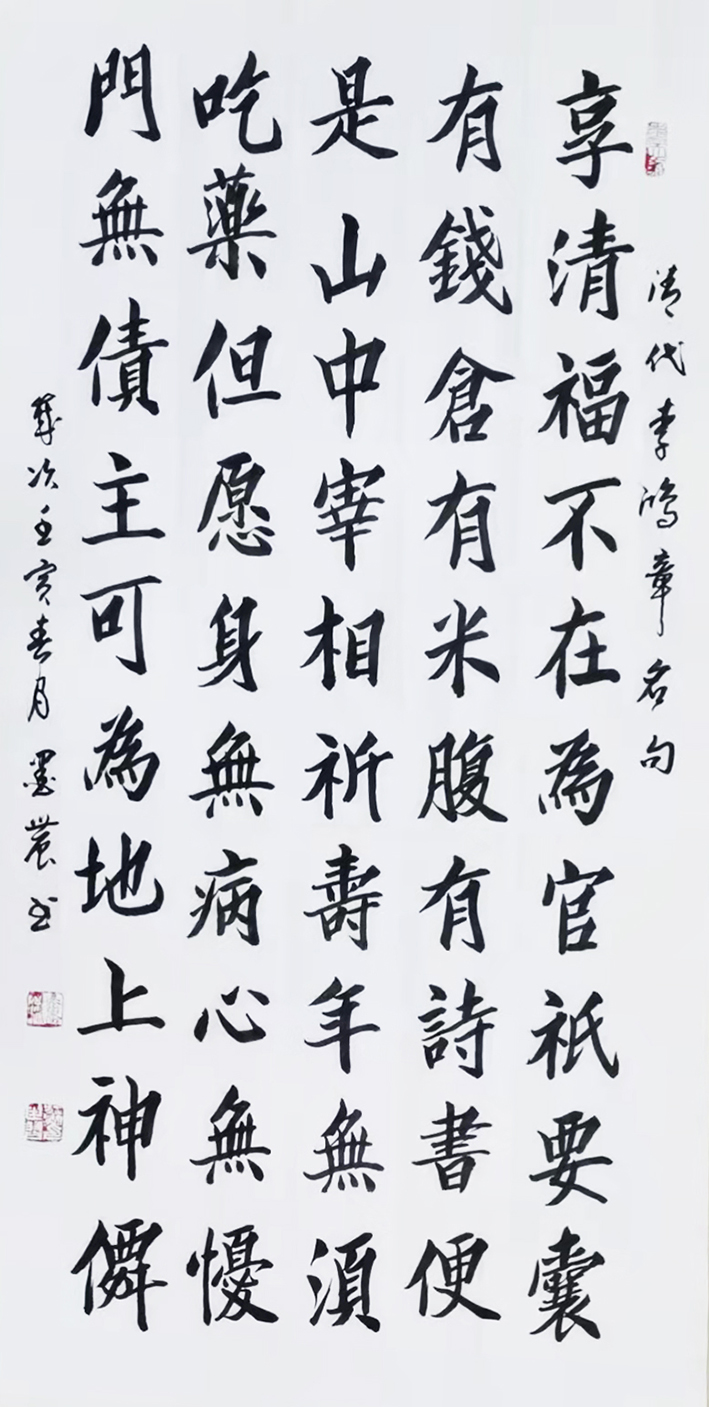 清代李鴻章名句
享清福不在為官祇要囊
有錢倉有米腹有詩書便
是山中宰相祈壽年無須
吃藥但愿身無病心無憂
門無債主可為地上神僊
歲次壬寅春月墨農书